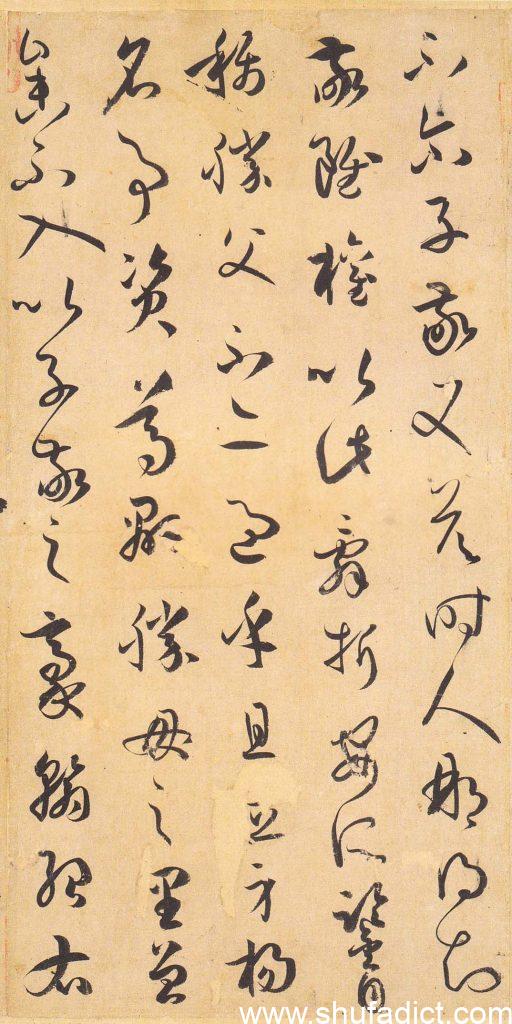 不尒子敬又答時人那得知
敬雖權以此辭折安所鑒自
稱勝父不亦過乎且立身揚
名事資尊顯勝母之里曾
參不入以子敬之豪翰紹右
www.shufadict.com